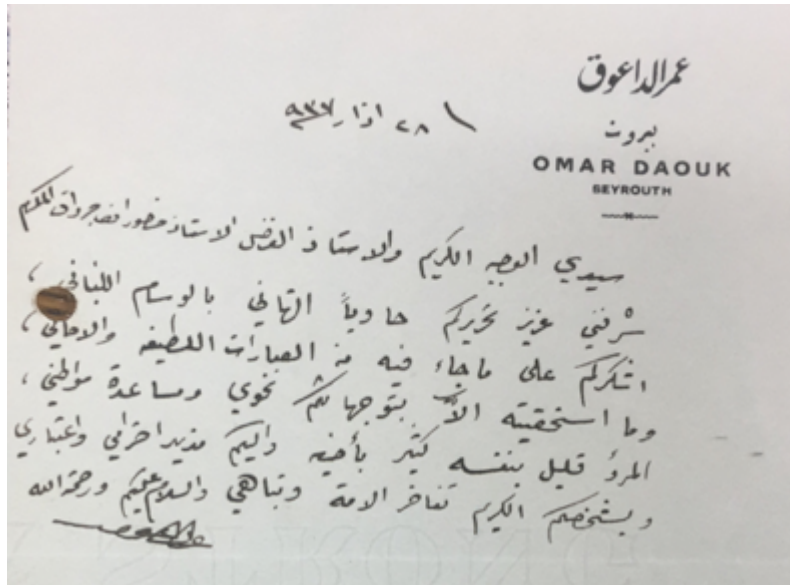 عمر الداعوق
بيروت
OMAR DAOUK
BEYROUTH
٢٨ اذار ٩٣٧
سيدي الوجيه الكريم والاستاذ الاستاذ جرداق المكرم
شرفني عزيز تحريركم حاوياً التهاني بالوسام اللبناني،
اشكركم على ما جاء فيه من العبارات اللطيفة والاماني،
وما استحقيته الا بتوجهاتكم نحوي ومساعدة مواطني،
المرؤ قليل بنفسه كثير بأخيه واليكم مزيد احترامي واعتباري
وبشخصكم الكريم تفاخر الامة وتباهي والسلام عليكم ورحمة الله